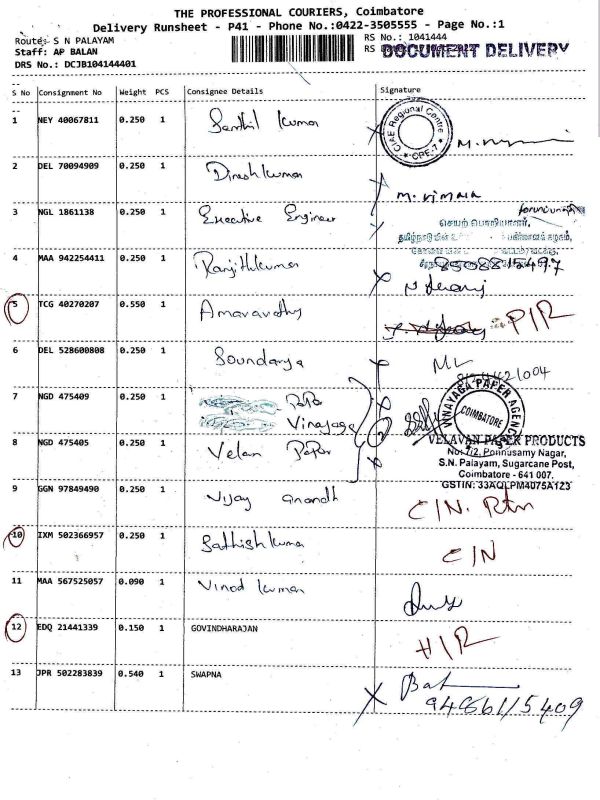 THE PROFESSIONAL COURIERS, Coimbatore
Delivery Runsheet - P41 - Phone No.:0422-3505555 - Page No.:1
Route: S N PALAYAM RS No.: 1041444
Staff: AP BALAN RS DOCUMENT DELIVERY
DRS No.: DCJB104144401
S No Consignment No Weight PCS Consignee Details Signature
1 NEY 40067811 0.250 1 Senthil Kumar
CIAE Regional Centre
* CPE-7 *
2 DEL 70094909 0.250 1 Dinesh kumar M. VIMALA
3 NGL 1861138 0.250 1 Executive Engineer
செயற் பொறியாளர்,
4 MAA 942254411 0.250 1 Ranjithkumar 8508815497
5 TCG 40270207 0.550 1 Amaravathy P/R
6 DEL 528600808 0.250 1 Soundarya
7 NGD 475409 0.250 1 Papa
Vinayaga
VINAYAGA PAPER AGENCY
COIMBATORE
8 NGD 475405 0.250 1 Velan Papa
VELAVAN PAPER PRODUCTS
No: 7/2, Ponnusamy Nagar,
S.N. Palayam, Sugarcane Post,
Coimbatore - 641 007.
GSTIN: 33AQLPM4075A1Z3
9 GGN 97849490 0.250 1 Vijay anandh C/N. Rtn
10 IXM 502366957 0.250 1 Sathish kumar C/N
11 MAA 567525057 0.090 1 Vinod kumar
12 EDQ 21441339 0.150 1 GOVINDHARAJAN H/R
13 JPR 502283839 0.540 1 SWAPNA